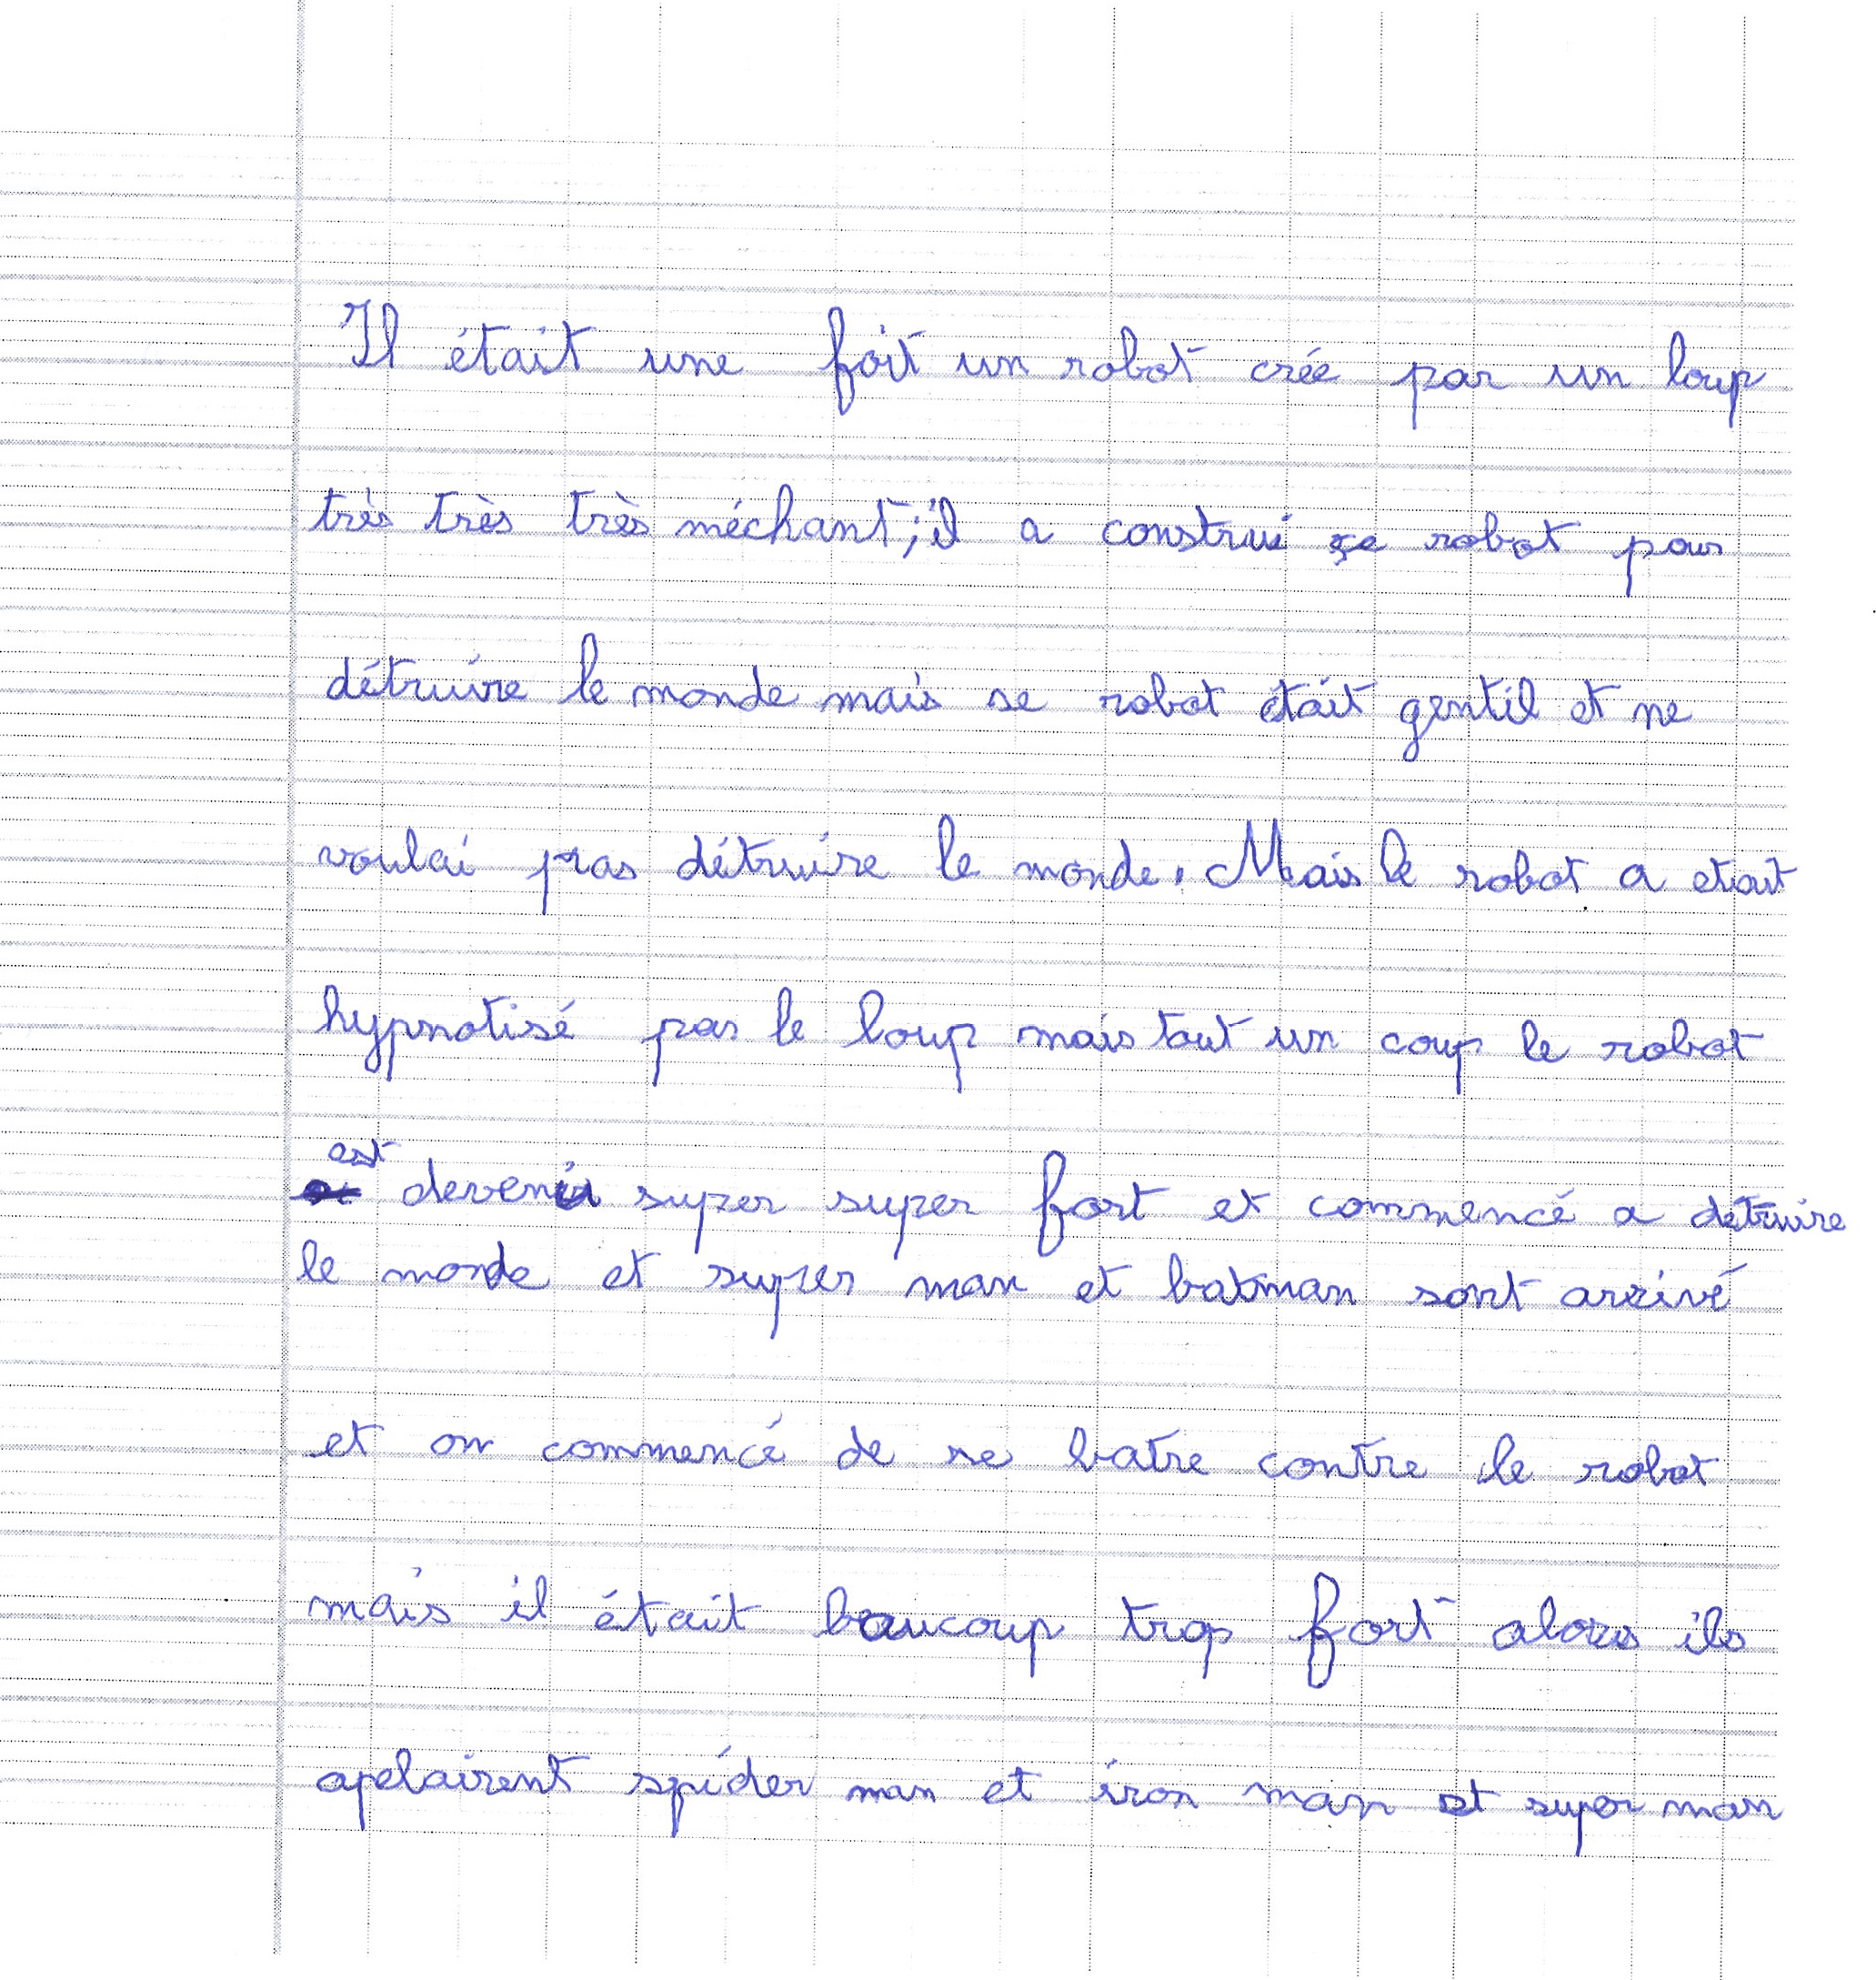 Il était une foit un robot crée par un loup
très très très méchant ; il a construi ce robot pour
détruire le monde mais se robot était gentil et ne
voulai pas détruire le monde. Mais le robot a etait
hypnotisé par le loup mais tout un coup le robot
est devenu super super fort et commencé a détruire
le monde et super man et batman sont arrivé
et on commencé de se batre contre le robot
mais il était beaucoup trop fort alors ils
apelairent spider man et iron man et super man